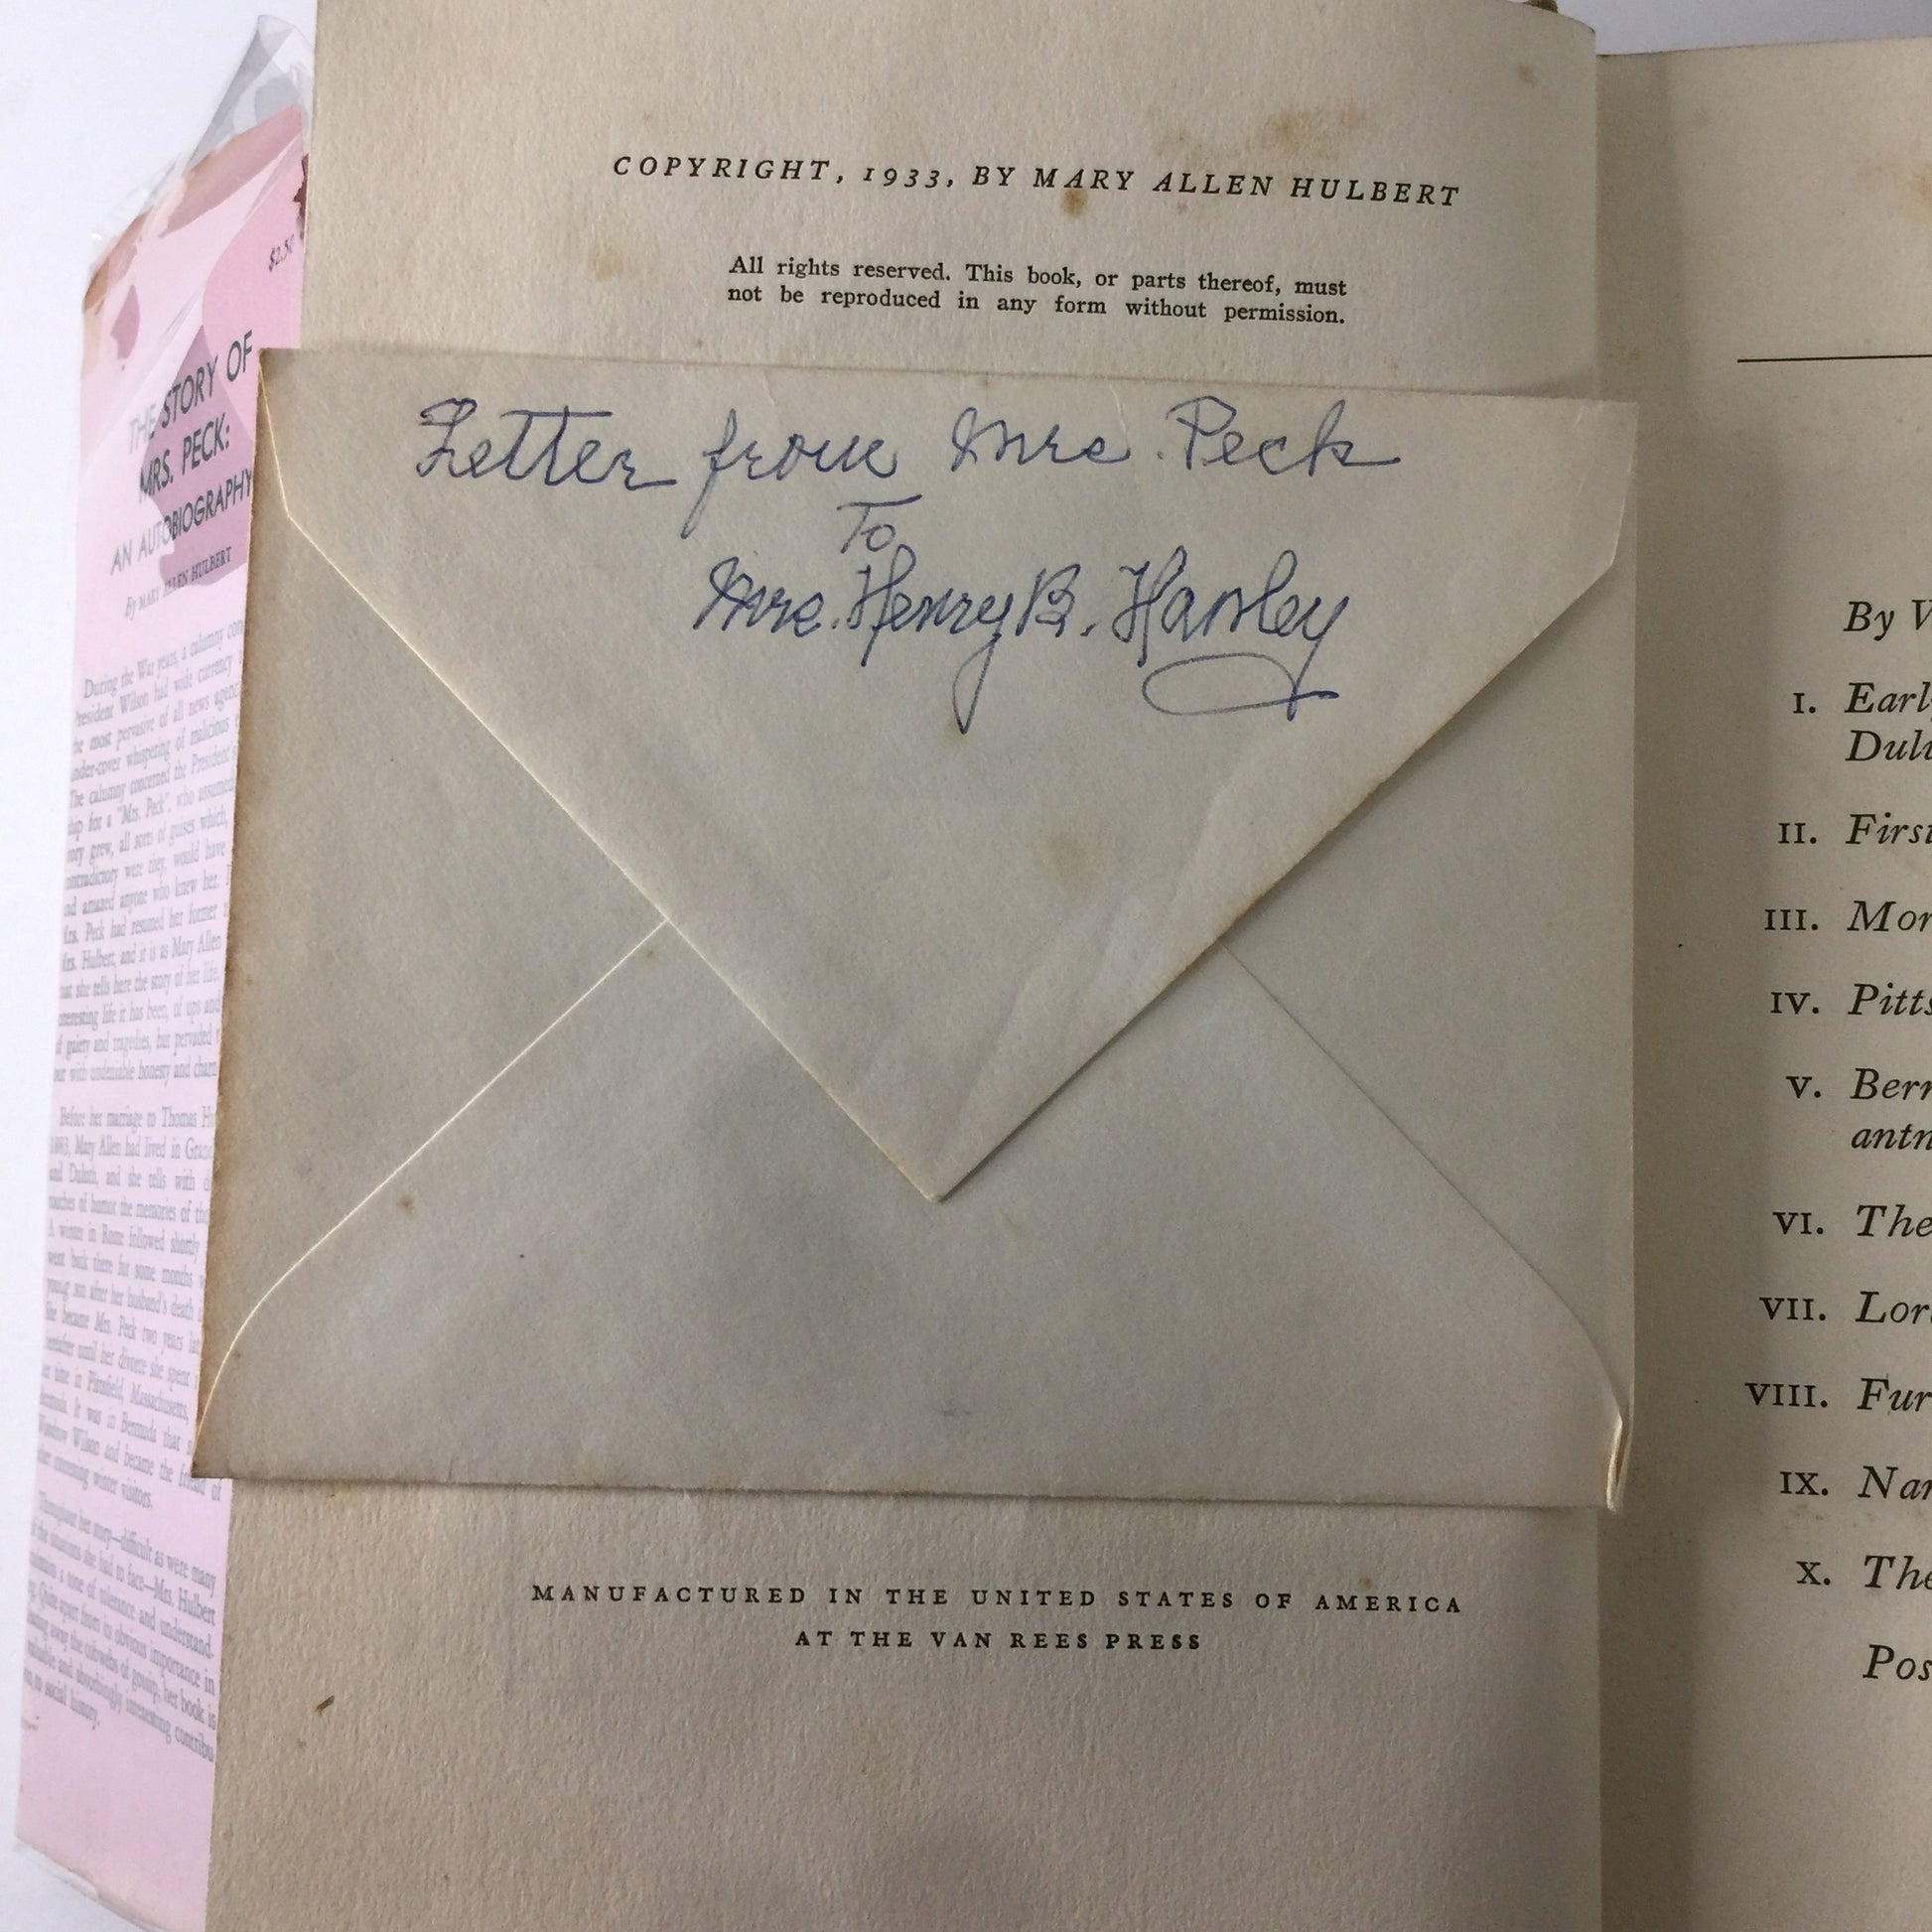 $2.50
THE STORY OF
MRS. PECK:
AN AUTOBIOGRAPHY
By MARY ALLEN HULBERT
During the War years, a calumny
President Wilson had wide currency
most pervasive of all news
under-cover whispering of malicious
The calumny concerned the President's
for a "Mrs. Peck", who assumed
grew, all sorts of guises which,
contradictory were they, would have
and amazed anyone who knew her.
Mrs. Peck had resumed her former
Mrs. Hulbert, and it is as Mary Allen
she tells here the story of her life.
interesting life it has been, of ups and
of gaiety and tragedies, but pervaded
with undeniable honesty and charm
Before her marriage to Thomas
Mary Allen had lived in
and Duluth, and she tells with
touches of humor the memories of
A winter in Rome followed shortly
went back there for some months
young son after her husband's death
She became Mrs. Peck two years
until her divorce she spent
her time in Pittsfield, Massachusetts,
It was in Bermuda that
Woodrow Wilson and became the friend of
other interesting winter visitors.
Throughout her story—difficult as were many
of the situations she had to face—Mrs. Hulbert
maintains a tone of tolerance and understand-
Quite apart from its obvious importance in
away the cobwebs of gossip, her book is
valuable and absorbingly interesting
to social history.
COPYRIGHT, 1933, BY MARY ALLEN HULBERT
All rights reserved. This book, or parts thereof, must
not be reproduced in any form without permission.
Letter from Mrs. Peck
To
Mrs. Henry B. Hanley
MANUFACTURED IN THE UNITED STATES OF AMERICA
AT THE VAN REES PRESS
By
I.
II.
III.
IV.
V.
VI. The
VII.
VIII.
IX.
X. The